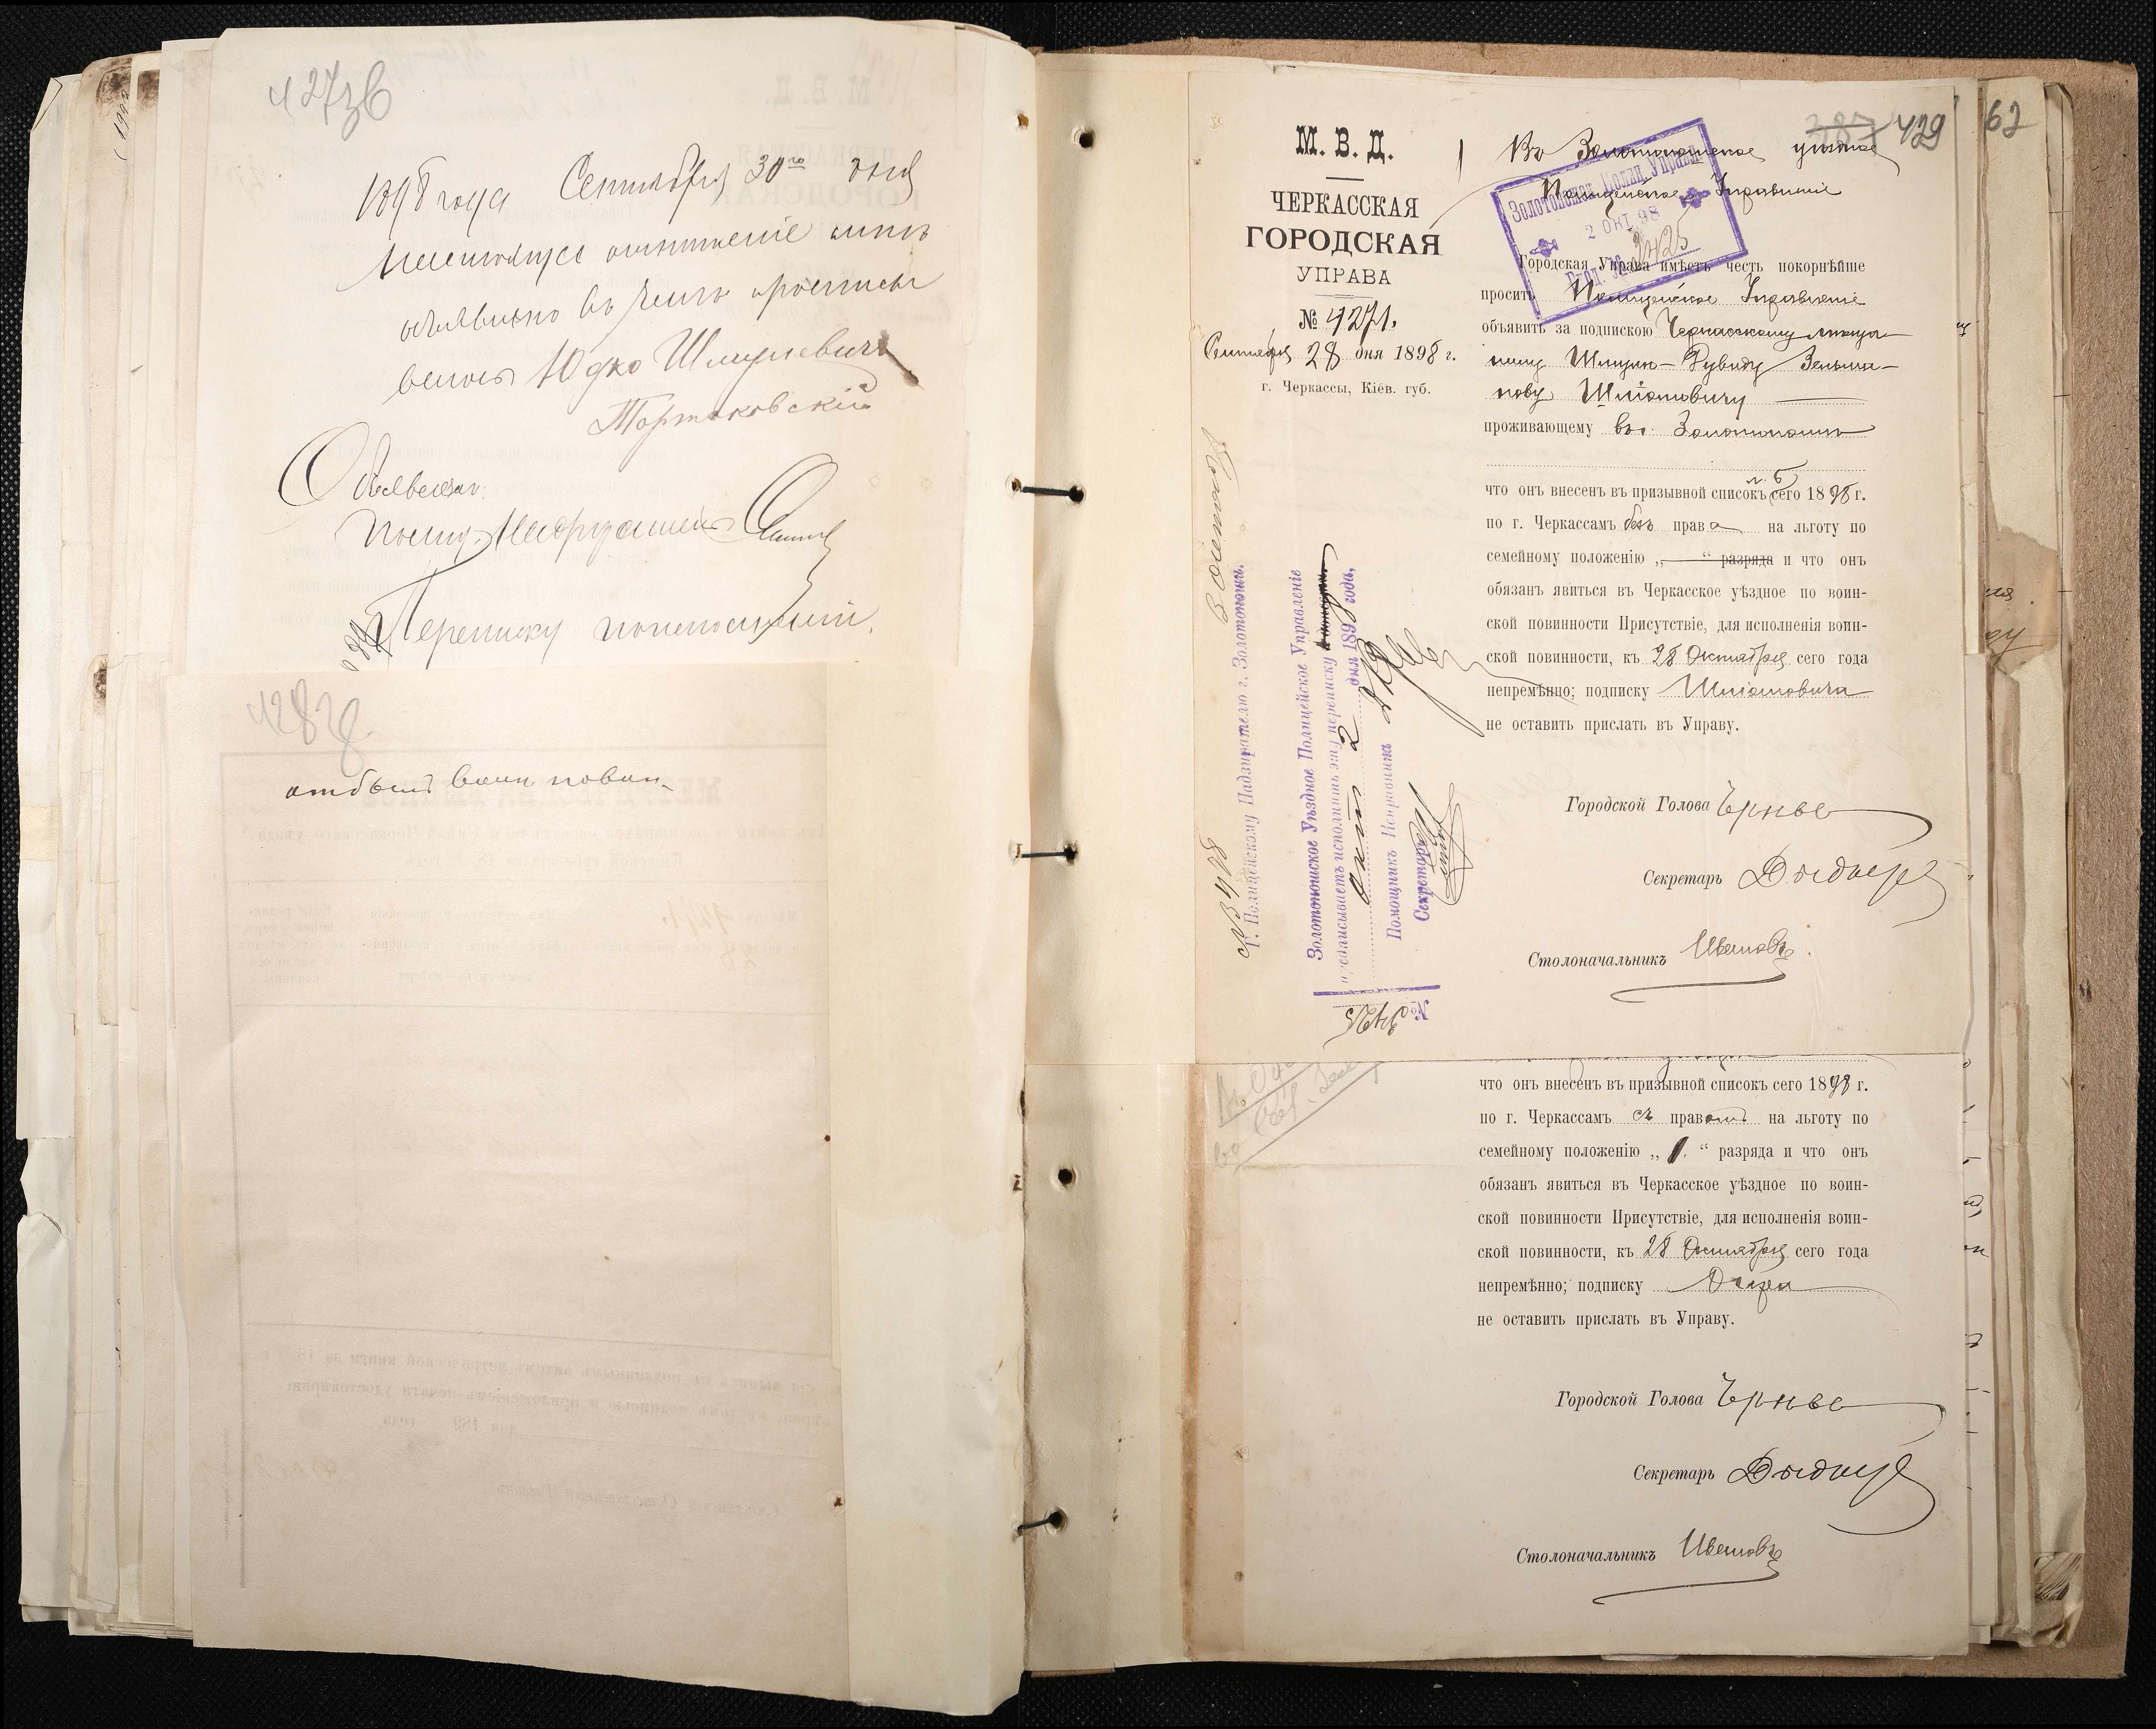 427зв
1898 года Сентября 30го дня
настоящее отношение мнѣ
объявлено въ чемъ и росписы
ваюсь Юдко Шмулевичъ
Тартаковскій
Объявилъ:
Полиц. Надзиратель
Переписку
428
отбылъ воин повин
М. В. Д.
ЧЕРКАССКАЯ
ГОРОДСКАЯ
УПРАВА
№ 4271.
Сентября 28 дня 1898 г.
г. Черкассы, Кіев. губ.
387 429
62
Въ Золотоношское уѣздное
Полицейское Управленіе
Золотоношск. Полиц. Управл.
2 ОКТ. 98
Городская Управа имѣетъ честь покорнѣйше
проситъ Полицейское Управленіе
объявить за подпискою Черкасскому мѣща-
нину Шмулю-Дувиду Зельма-
нову Шпіотовичу
проживающему въ г. Золотоноша
л. Б
что онъ внесенъ въ призывной списокъ сего 1898 г.
по г. Черкассамъ безъ права на льготу по
семейному положенію „ — “ разряда и что онъ
обязанъ явиться въ Черкасское уѣздное по воин-
ской повинности Присутствіе, для исполненія воин-
ской повинности, къ 28 Октября сего года
непремѣнно; подписку Шпіотовича
не оставить прислать въ Управу.
Городской Голова
Секретарь
Столоначальникъ Ивановъ.
№ 3498
Г. Полицейскому Надзирателю г. Золотоноши.
Золотоношское Уѣздное Полицейское Управленіе
предписываетъ исполнить эту переписку
окт 2 дня 1898 года.
Помощникъ Исправника
Секретарь
№
что онъ внесенъ въ призывной списокъ сего 1898 г.
по г. Черкассамъ съ правомъ на льготу по
семейному положенію „ 1. “ разряда и что онъ
обязанъ явиться въ Черкасское уѣздное по воин-
ской повинности Присутствіе, для исполненія воин-
ской повинности, къ 28 Октября сего года
непремѣнно; подписку
не оставить прислать въ Управу.
Городской Голова
Секретарь
Столоначальникъ Ивановъ